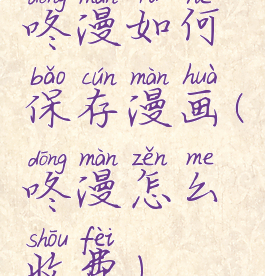 dōng màn rú hé
咚漫如何
bǎo cún màn huà
保存漫画(
dōng màn zěn me
咚漫怎么
shōu fèi
收费)